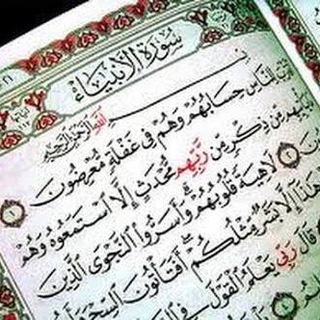 سُورَةُ الأَنبِيَاءِ
بِسْمِ اللَّهِ الرَّحْمَٰنِ الرَّحِيمِ
لِلنَّاسِ حِسَابُهُمْ وَهُمْ فِي غَفْلَةٍ مُّعْرِضُونَ ١
يَأْتِيهِم مِّن ذِكْرٍ مِّن رَّبِّهِم مُّحْدَثٍ إِلَّا اسْتَمَعُوهُ وَهُمْ
٢ لَاهِيَةً قُلُوبُهُمْ وَأَسَرُّوا النَّجْوَى الَّذِينَ
هَٰذَا إِلَّا بَشَرٌ مِّثْلُكُمْ أَفَتَأْتُونَ السِّحْرَ
قَالَ رَبِّي يَعْلَمُ الْقَوْلَ فِي